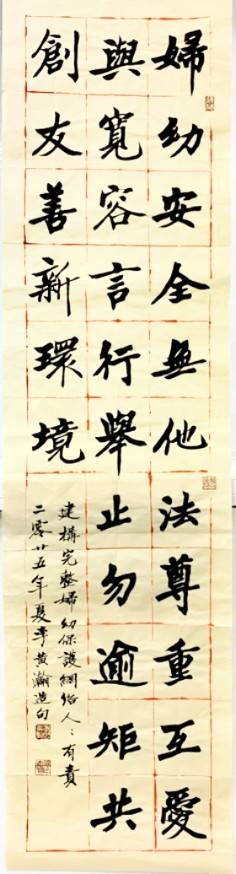 婦幼安全無他法尊重互愛
與寬容言行舉止勿逾矩共
創友善新環境
建構完整婦幼保護網絡人：有責
二零廿五年夏季黃瀚造句